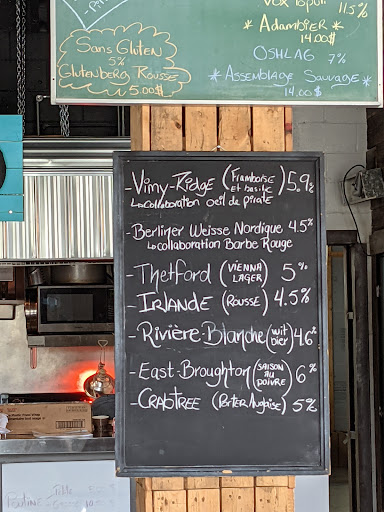 Vox Populi 11.5%
* Adambier *
14.00$
Oshlag 7%
* Assemblage Sauvage *
14.00$
Sans Gluten
5%
Glutenberg Rousse
5.00$
- Vimy-Ridge (Framboise et basilic) 5.9%
↳ collaboration oeil de pirate
- Berliner Weisse Nordique 4.5%
↳ collaboration Barbe Rouge
- Thetford (Vienna Lager) 5%
- Irlande (Rousse) 4.5%
- Rivière-Blanche (wit bier) 4.6%
- East-Broughton (Saison au poivre) 6%
- Crabtree (Porter Anglaise) 5%
Poutine